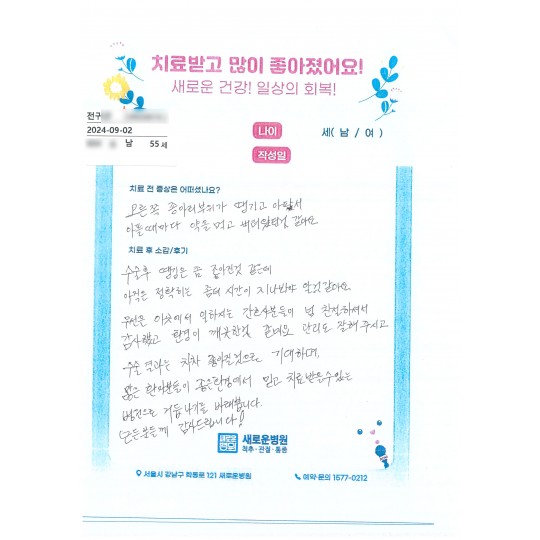 치료받고 많이 좋아졌어요!
새로운 건강! 일상의 회복!
전구
2024-09-02
남 55세
나이
세( 남 / 여 )
작성일
치료 전 증상은 어떠셨나요?
오른쪽 종아리부위가 땡기고 아팠서
아플때마다 약을 먹고 버티었던것 같아요
치료 후 소감/후기
수술후 땡김은 좀 좋아진것 같은데
아직은 정확히는 좀더 시간이 지나봐야 알것같아요.
우선은 이곳에서 일하시는 간호사분들이 넘 친절하셔서
감사했고 환경이 깨끗한것 같네요 관리도 잘해 주시고
수술결과는 차차 좋아질것으로 기대하며,
많은 환자분들이 좋은환경에서 믿고 치료받을수있는
병원으로 거듭나기를 바래봅니다.
모든분들께 감사드립니다!
새로운병원
새로운병원
척추·관절·통증
서울시 강남구 학동로 121 새로운병원
예약·문의 1577-0212